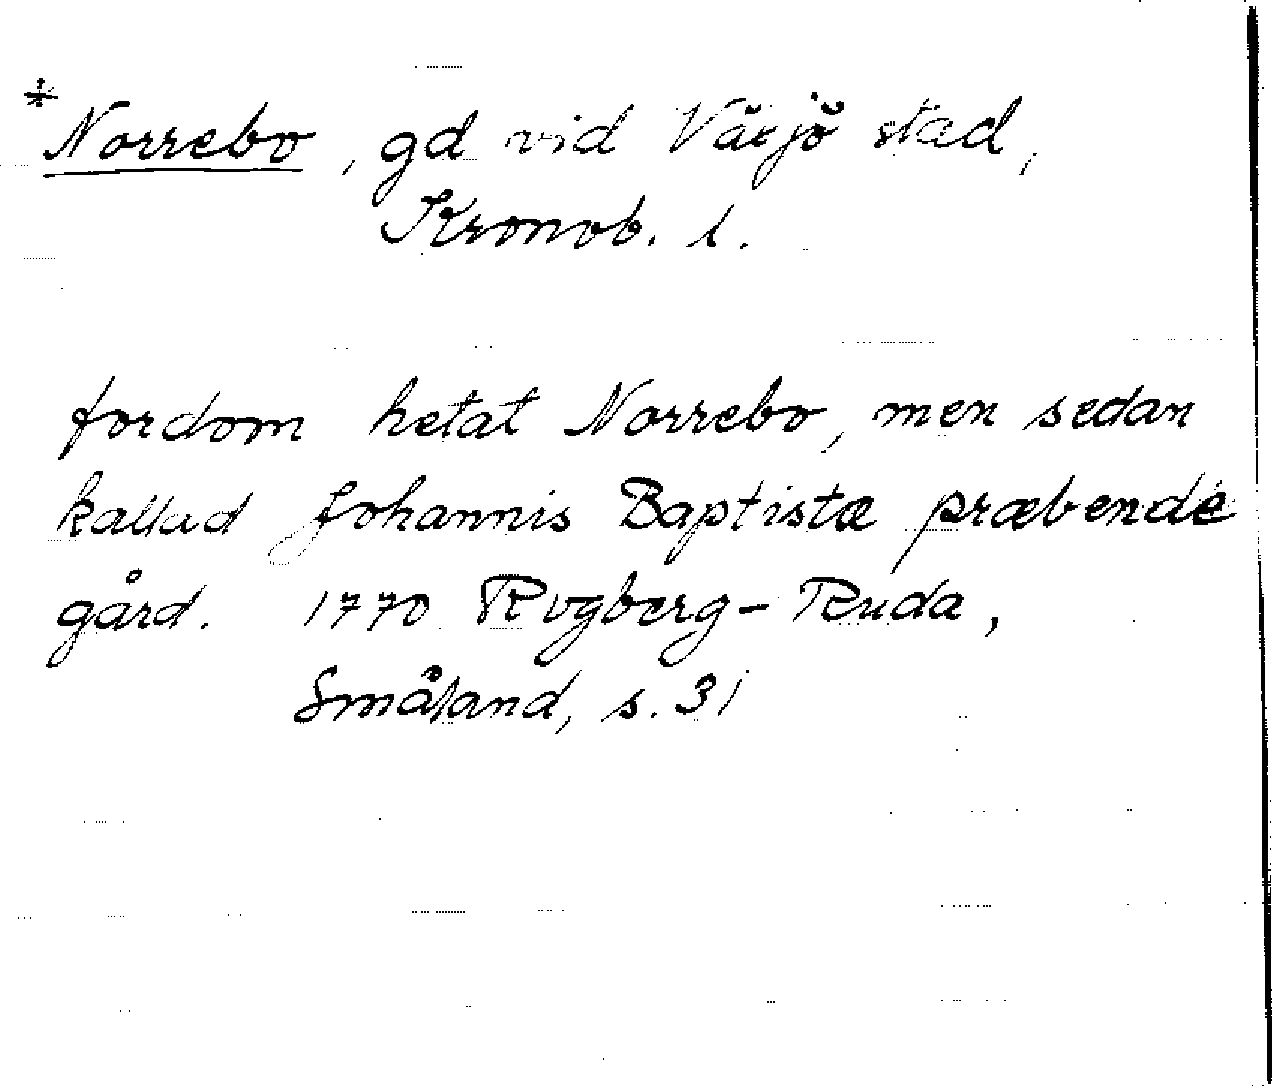 * Norrebo, gd vid Växjö stad,
Kronob. l.
fordom hetat Norrebo, men sedan
kallad Johannis Baptistæ præbende
gård. 1770 Rogberg-Ruda,
Småland, s. 31